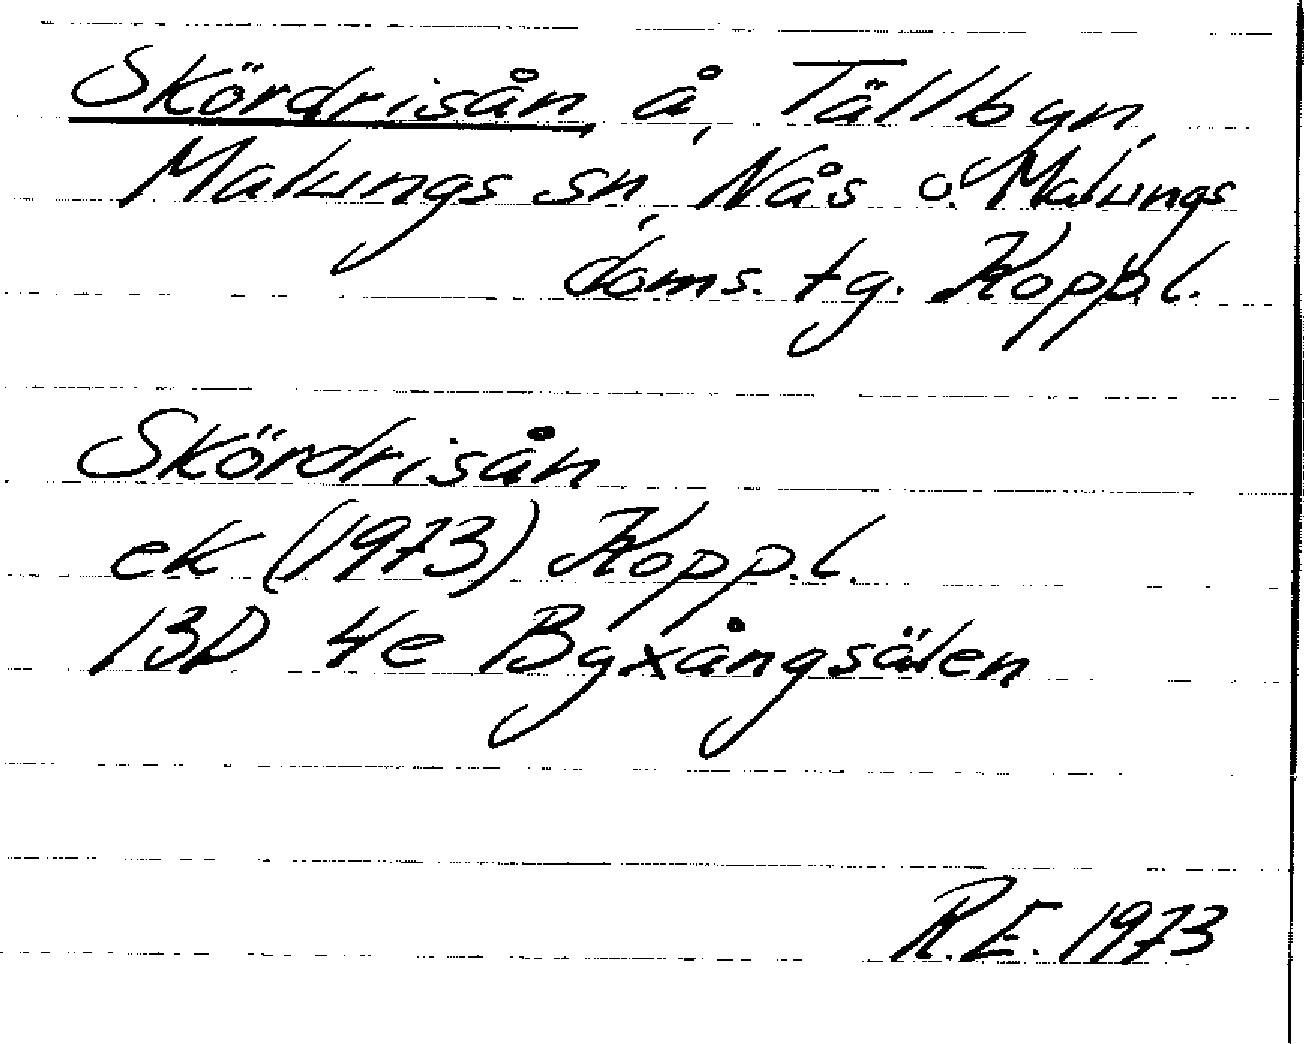 Skördrisån, å, Tällbyn,
Malungs sn, Nås o. Malungs
doms. tg. Koppl.
Skördrisån
ek (1973) Kopp.l.
13D 4e Byxångsälen
R.E. 1973